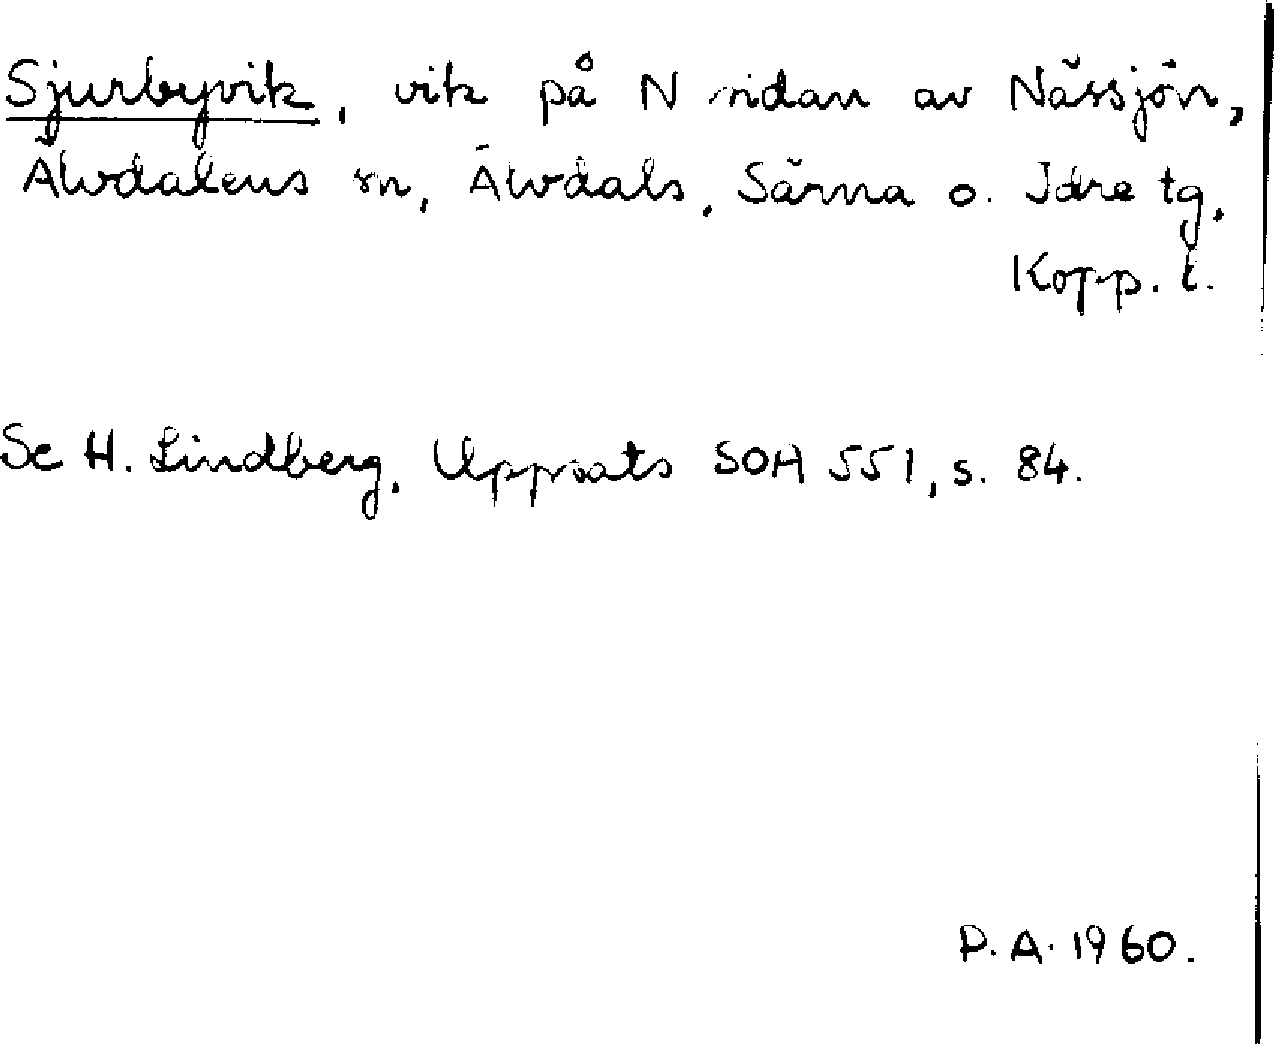 Sjurbyvik, vik på N sidan av Nässjön,
Älvdalens sn, Älvdals, Särna o. Idre tg,
Kopp. l.
Se H. Lindberg, Uppsats SOA 551, s. 84.
P.A. 1960.